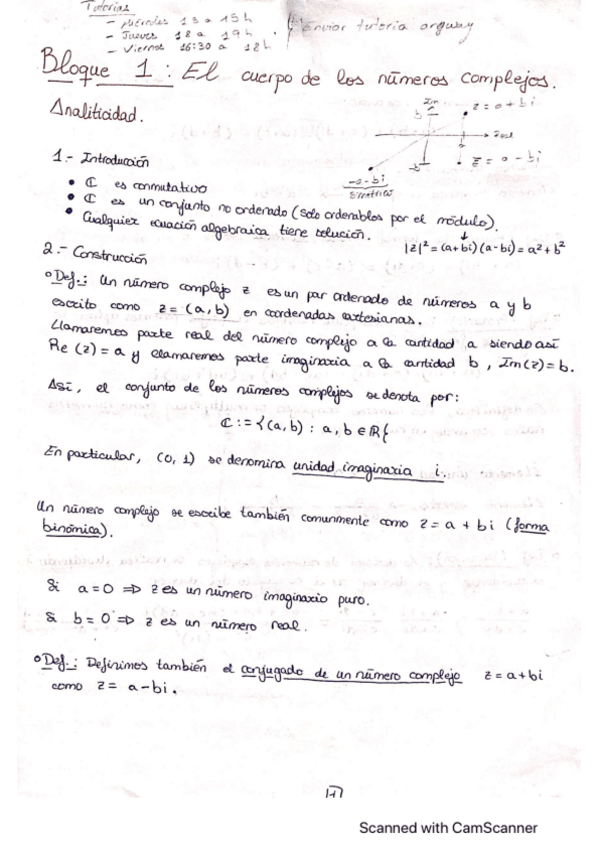 Tutorías
- Miércoles 13 a 15h
- Jueves 18 a 19h
- Viernes 16:30 a 18h
Enviar tutoría
Bloque 1: El cuerpo de los números complejos.
Analiticidad.
Im
b
z = a + bi
Real
z̄ = a - bi
-b
-a-bi
Simétrico
1.- Introducción
• ℂ es conmutativo
• ℂ es un conjunto no ordenado (solo ordenables por el módulo).
• Cualquier ecuación algebraica tiene solución.
|z|² = (a+bi)(a-bi) = a² + b²
2.- Construcción
° Def.: Un número complejo z es un par ordenado de números a y b
escrito como z = (a, b) en coordenadas cartesianas.
Llamaremos parte real del número complejo a la cantidad a siendo así
Re(z) = a y llamaremos parte imaginaria a la cantidad b, Im(z) = b.
Así, el conjunto de los números complejos se denota por:
ℂ := {(a, b) : a, b ∈ ℝ}
En particular, (0, 1) se denomina unidad imaginaria i.
Un número complejo se escribe también comunmente como z = a + bi (forma
binómica).
Si a = 0 ⇒ z es un número imaginario puro.
Si b = 0 ⇒ z es un número real.
° Def.: Definimos también el conjugado de un número complejo z = a + bi
como z = a - bi.
Scanned with CamScanner